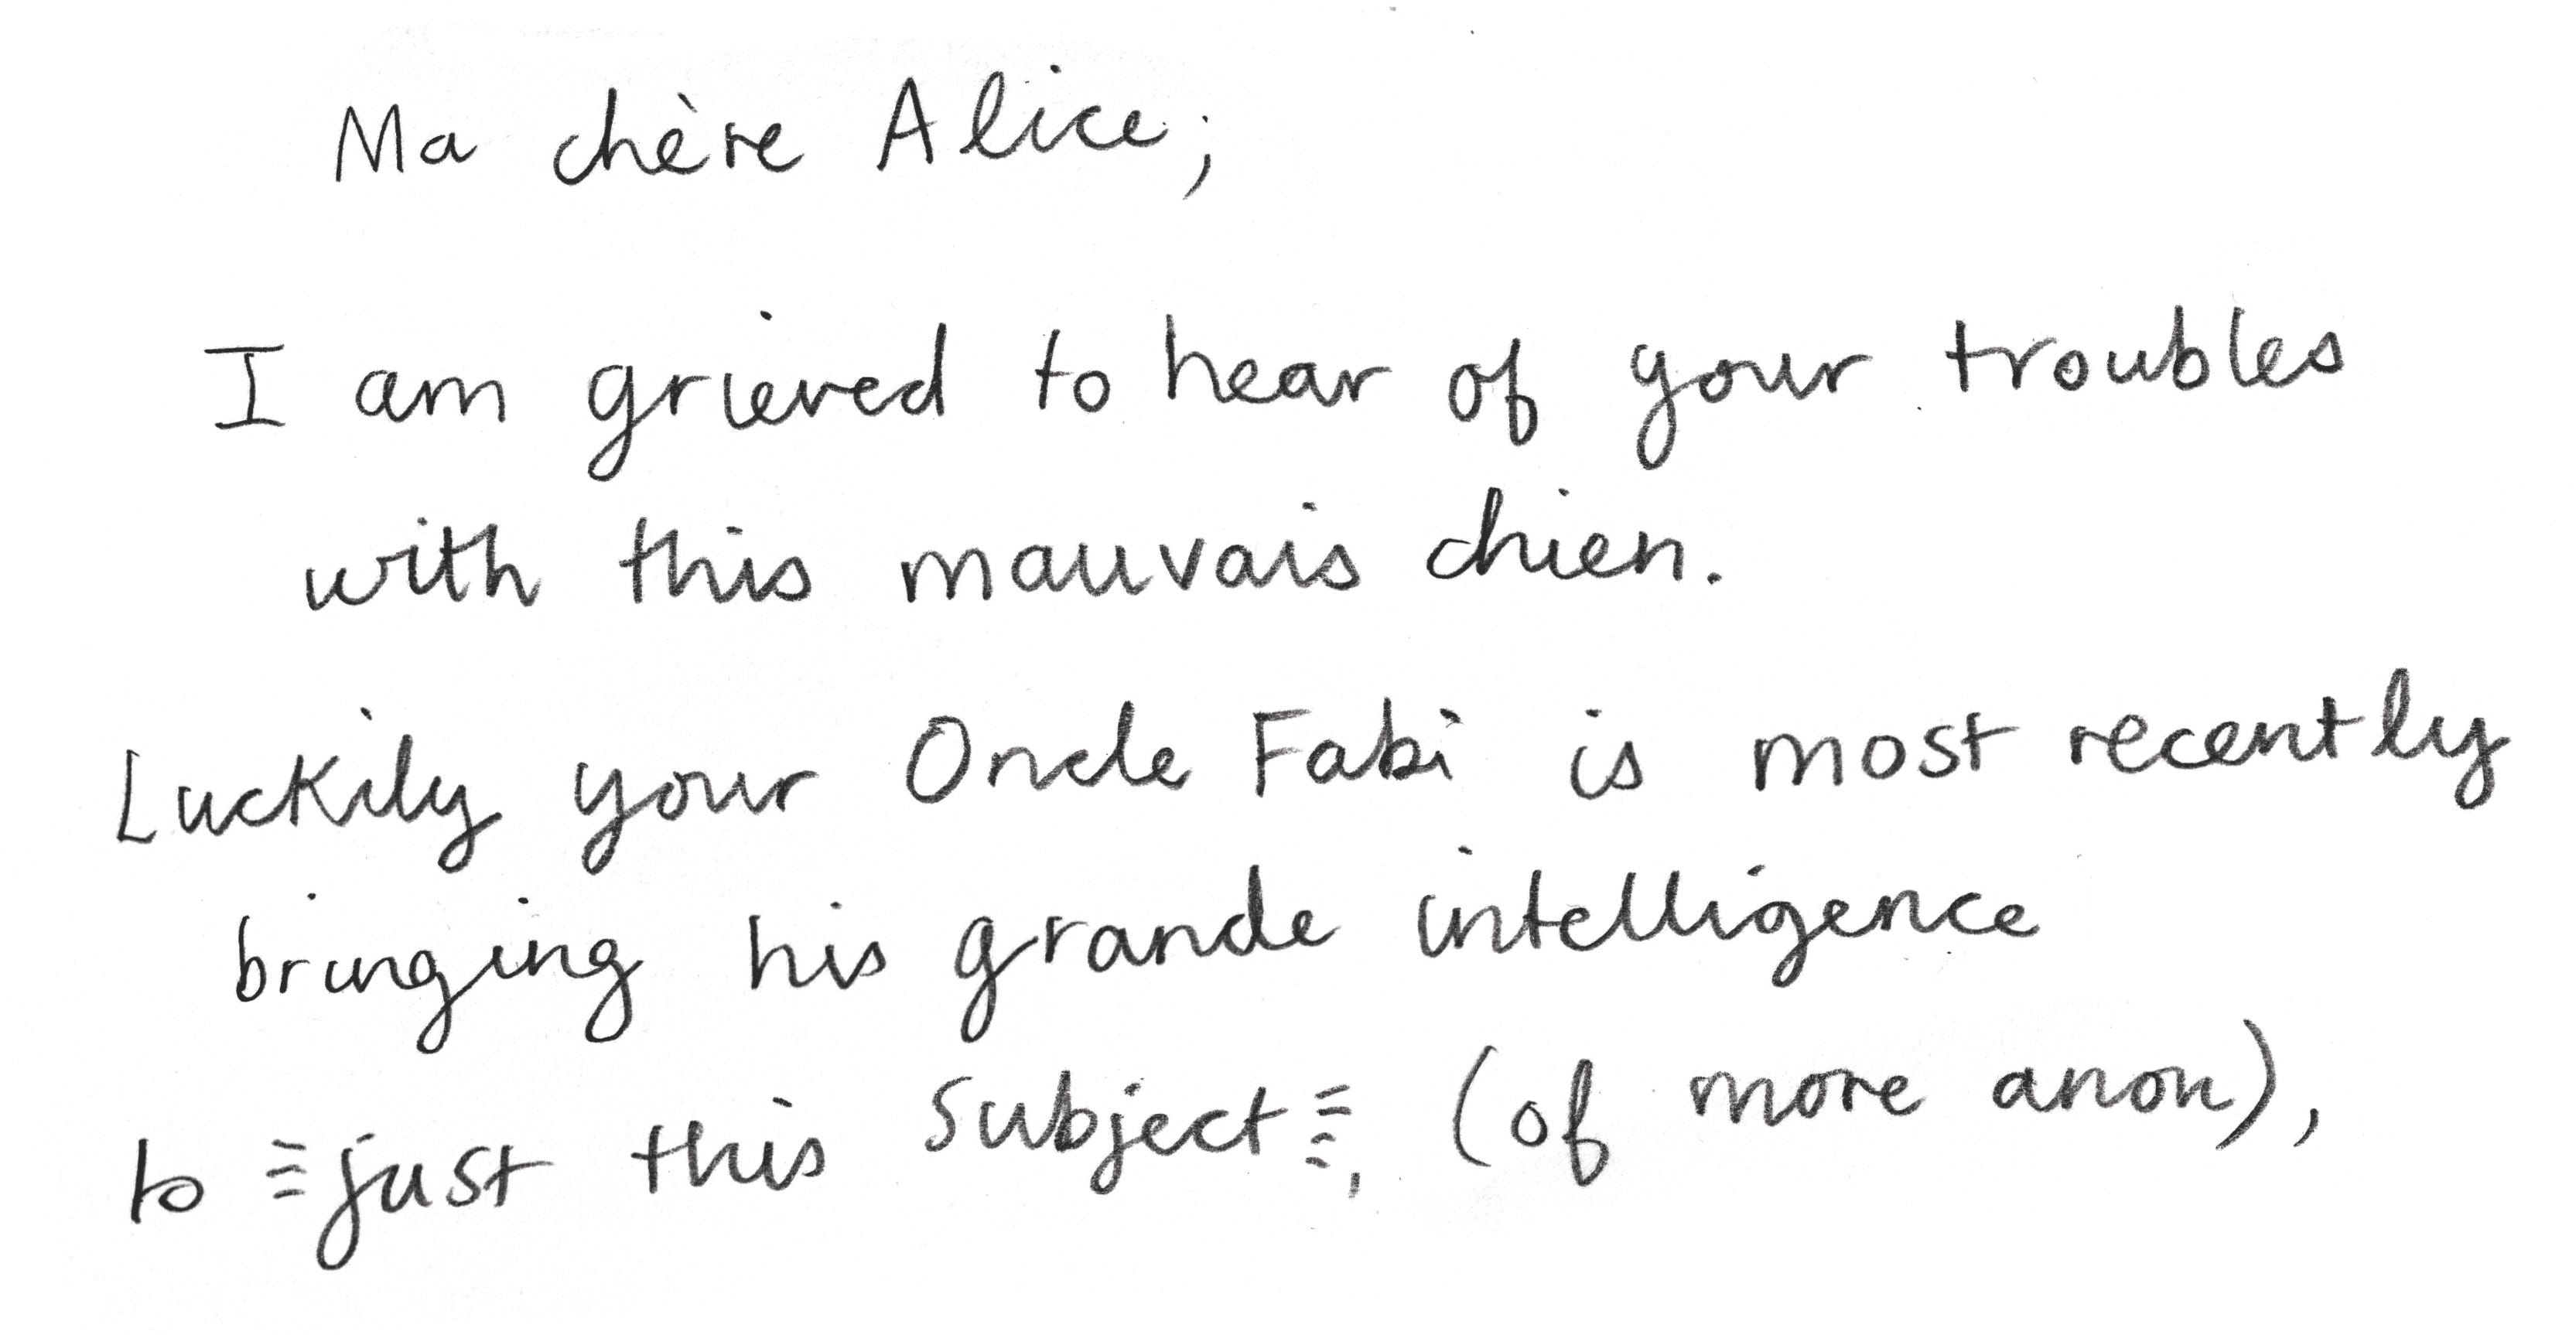 Ma chère Alice;
I am grieved to hear of your troubles
with this mauvais chien.
Luckily your Oncle Fabi is most recently
bringing his grande intelligence
to just this subject, (of more anon),